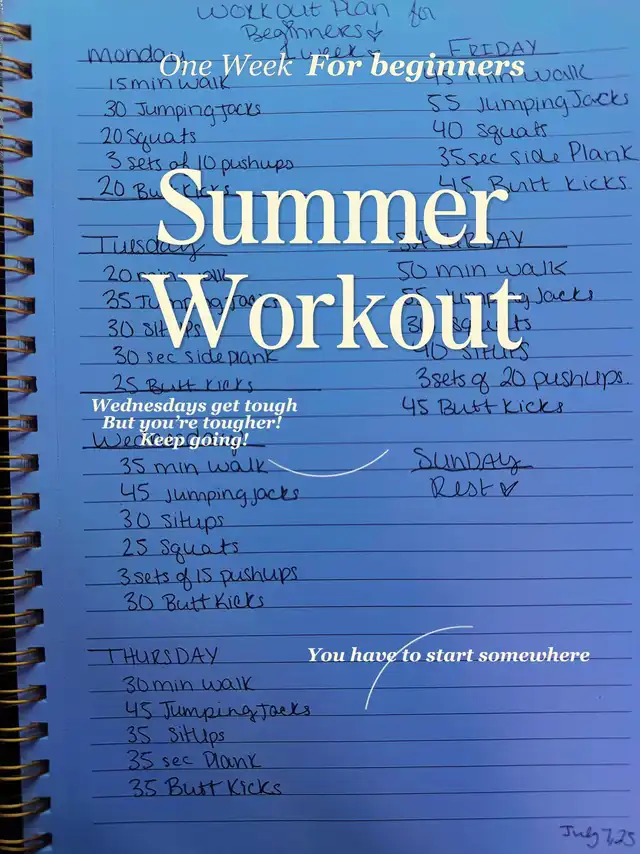 Workout Plan for
Beginners
week
One Week For beginners
Summer
Workout
Monday
15 min walk
30 Jumping Jacks
20 Squats
3 sets of 10 pushups
20 Butt Kicks
Tuesday
20 min walk
35 Jumping Jacks
30 Situps
30 sec side plank
25 Butt Kicks
Wednesdays get tough
But you're tougher!
Keep going!
Wednesday
35 min walk
45 Jumping jacks
30 Situps
25 Squats
3 sets of 15 pushups
30 Butt Kicks
THURSDAY
30 min walk
45 Jumping Jacks
35 Situps
35 sec Plank
35 Butt Kicks
FRIDAY
45 min walk
55 Jumping Jacks
40 Squats
35 sec side Plank
45 Butt Kicks
SATURDAY
50 min walk
55 Jumping Jacks
Squats
40 Situps
3 sets of 20 pushups.
45 Butt Kicks
SUNDAY
Rest ♥
You have to start somewhere
July 7, 25